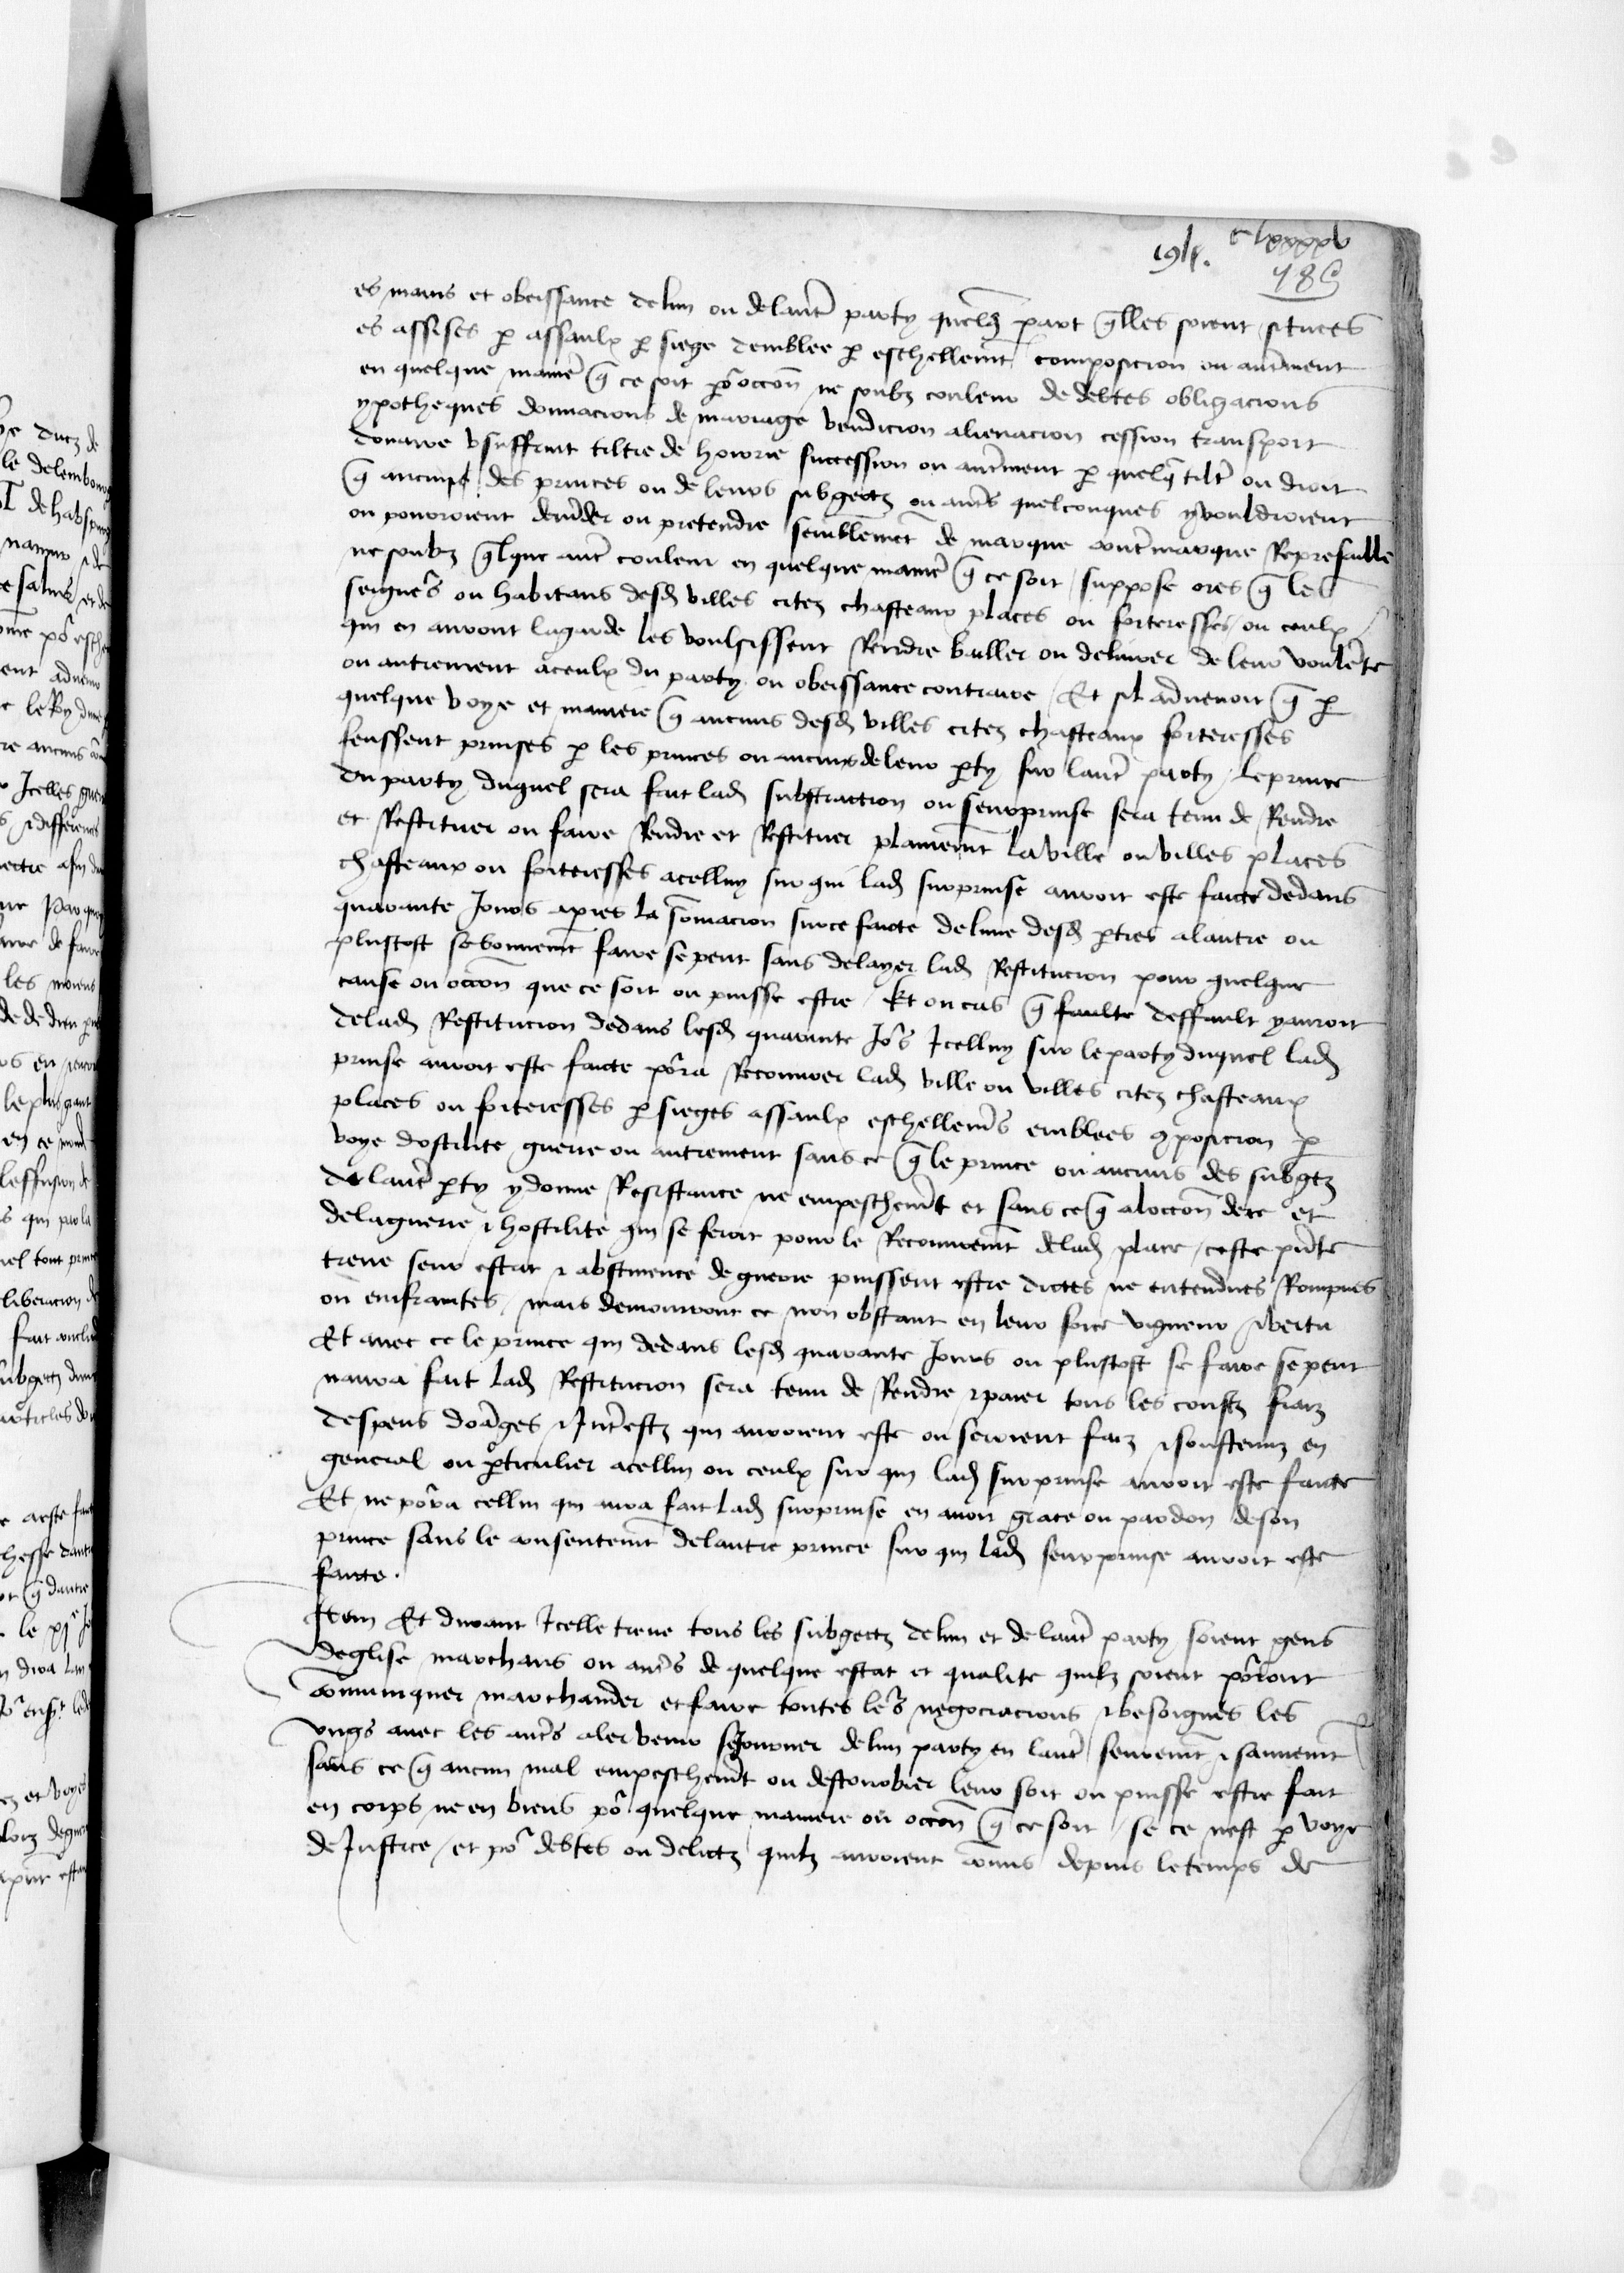 194. clxxxxv
185
es mains et obeissance de lun ou de laut̃ party quelq̃ part q̃lles soient situees
es assises p assaulx p siege demblee p eschellem̃t composicion ou aut̃ment
en quelque manie᷒ q̃ ce soit po᷒ occõn ne soubz couleur de debtes obligacions
ypotheques donnacions de mariage vendicion alienacion cession transport
douaire usuffruit tiltre de hoirie succession ou aut̃ment p quelq̃ tilt̃ ou droit
q̃ aucuns des princes ou de leurs subgectz ou aut̃s quelconques y vouldroient
ou pourroient demãder ou pretendre semblem̃et de marque cont̃marque Represaille
ne soubz q̃lque aut̃ couleur en quelque manie᷒ q̃ ce soit suppose ores q̃ les
seigneũs ou habitans desd villes citez chasteaux places ou forteresses ou ceulx
qui en auront la garde les voulsissent Rendre bailler ou deliurer de leur voulẽte
ou autrement a ceulx du party ou obeissance contraire / Et sil aduenoit q̃ p
quelque voye et maniere q̃ aucuns desd villes citez chasteaux forteresses
feussent prinses p les princes ou aucuns de leur pty sur laut̃ party / le prince
du party duquel sera fait lad substraction ou seurprinse sera tenu de Rendre
et Restituer ou faire Rendre et Restituer plainem̃t la ville ou villes places
chasteaux ou forteresses a celluy sur qui lad surprinse auroit este faicte dedans
quarante Jours apres la som̃acion sur ce faicte de lune desd pties a lautre ou
plustost se bonnem̃t faire se peut sans delayer lad Restitucion pour quelque
cause ou occõn que ce soit ou puisse estre / Et ou cas q̃ faulte deffault y auroit
de lad Restitucion dedans lesd quarante Jo᷒s Icelluy sur le party duquel lad
prinse auroit este faicte po᷒ra Recouurer lad ville ou villes citez chasteaux
places ou forteresses p sieges assaulx eschellem̃s emblees 9posicion p
voye dostilite guerre ou autrement sans ce q̃ le prince ou aucuns des subgtz
de laut̃ pty y donne Resistance ne empeschem̃t et sans ce q̃ a loccõn de ce et
de la guerre & hostilite qui se feroit pour le Recouurem̃t de lad place / ceste pñte
treue seur estat & abstinence de guerre puissent estre dictes ne entendues Rompues
ou enfraintes / mais demourront ce non obstant en leur force vigueur & vertu
Et auec ce le prince qui dedans lesd quarante Jours ou plustost se faire se peut
naura fait lad Restitucion sera tenu de Rendre & paier tous les coustz fraiz
despens dõages & Int̃estz qui auroient este ou seroient faiz & soustenuz en
general ou pticulier a cellui ou ceulx sur qui lad surprinse auroit este faicte
Et ne po᷒ra cellui qui aura fait lad surprinse en auoir grace ou pardon de son
prince sans le consentem̃t de lautre prince sur qui lad seurprinse auroit este
faicte .
Item Et durant Icelle treue tous les subgectz de lun et de laut̃ party soient gens
deglise marchans ou aut̃s de quelque estat et qualite quilz soient po᷒ront
cõmuniquer marchander et faire toutes le᷒s negociacions & besoignes les
ungs auec les aut̃s aler venir seJourner de lun party en laut̃ seurem̃t & sauuem̃t
sans ce q̃ aucun mal empeschem̃t ou destourbier leur soit ou puisse estre fait
en corps ne en biens po᷒ quelque maniere ou occõn q̃ ce soit / se ce nest p voye
de Justice / et po᷒ debtes ou delictz quilz auroient cõmis depuis le temps de